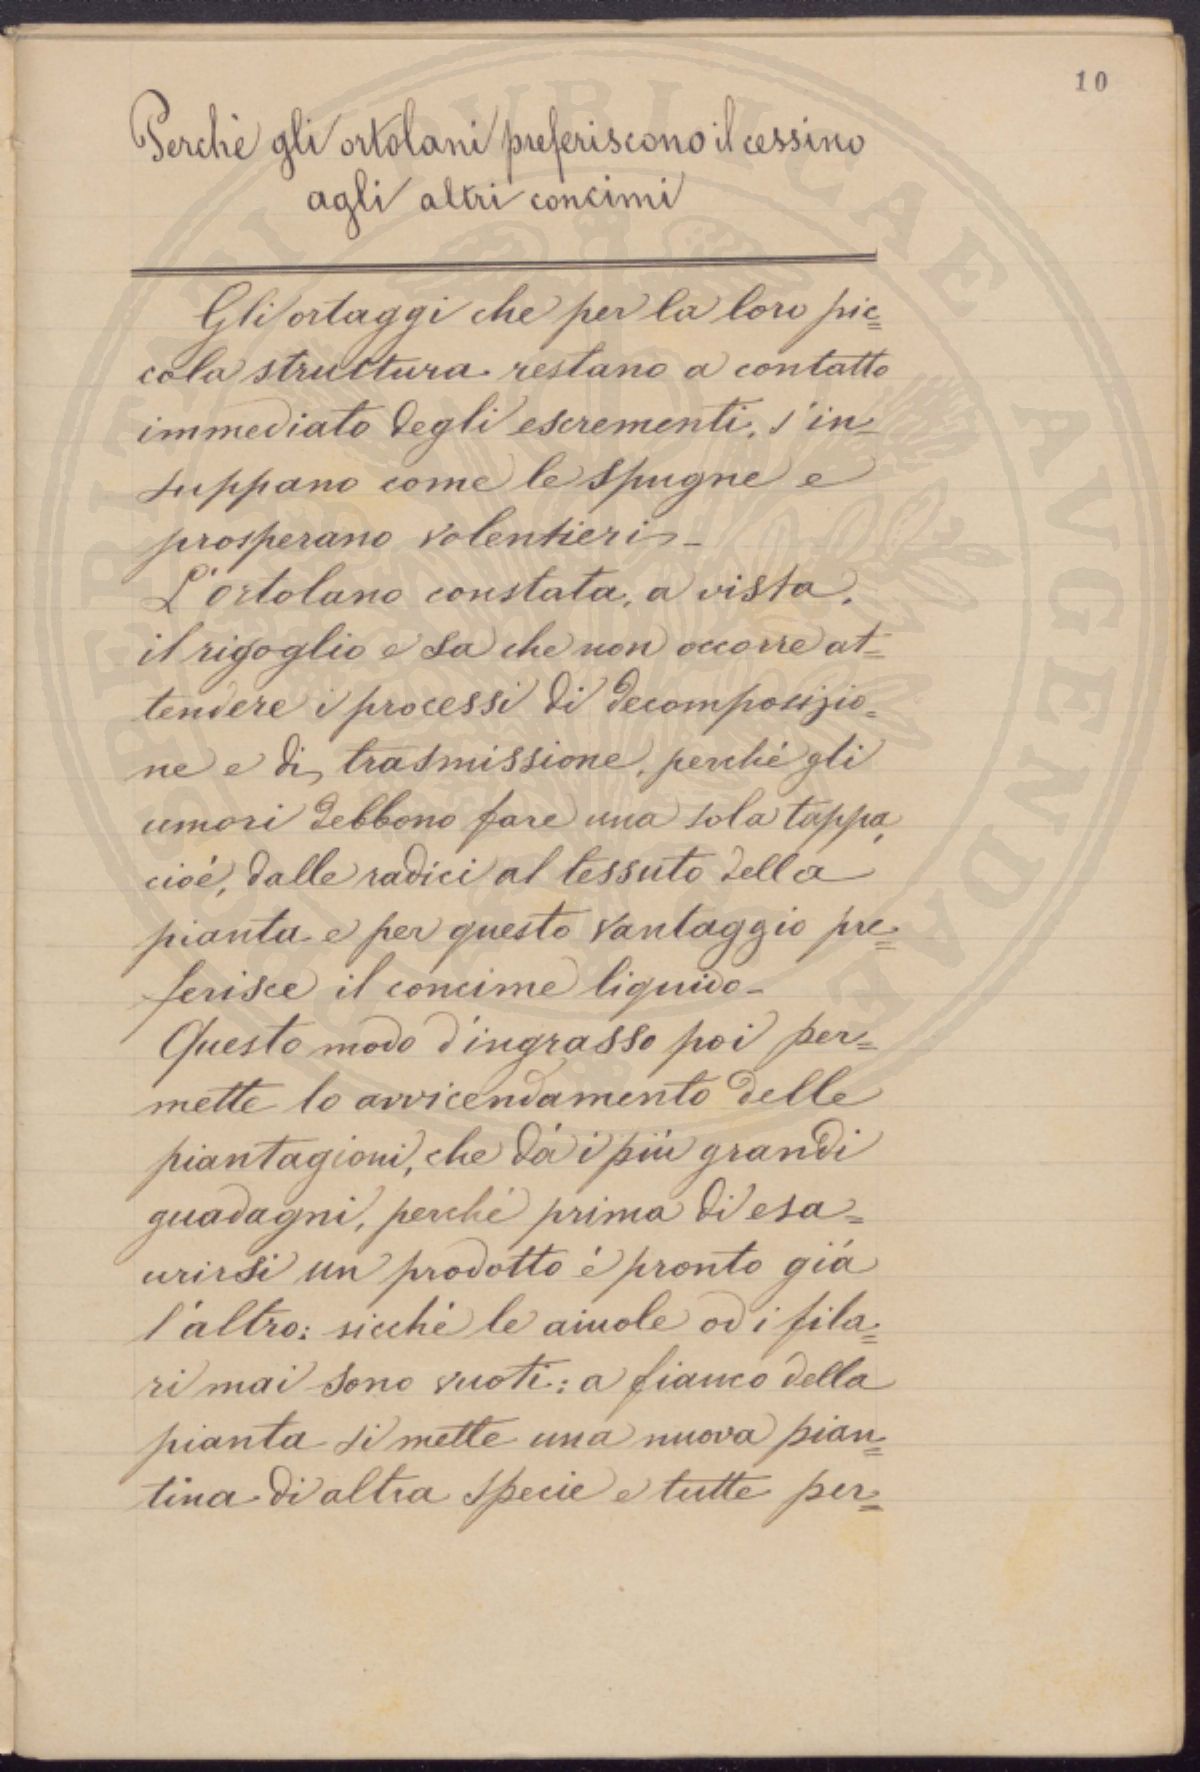 10
Perchè gli ortolani preferiscono il cessino
agli altri concimi
Gli ortaggi che per la loro pic=
cola struttura restano a contatto
immediato degli escrementi, s'in=
suppano come le spugne e
prosperano volentieri -
L'ortolano constata, a vista,
il rigoglio e sa che non occorre at=
tendere i processi di decomposizio=
ne e di trasmissione, perchè gli
umori debbono fare una sola tappa,
cioè, dalle radici al tessuto della
pianta e per questo vantaggio pre=
ferisce il concime liquido -
Questo modo d'ingrasso poi per=
mette lo avvicendamento delle
piantagioni, che dà i più grandi
guadagni, perchè prima di esa=
urirsi un prodotto è pronto già
l'altro: sicchè le aiuole od i fila=
ri mai sono vuoti: a fianco della
pianta si mette una nuova pian=
tina di altra specie e tutte per=
PROSPERITATI PVBLICAE AVGENDAE